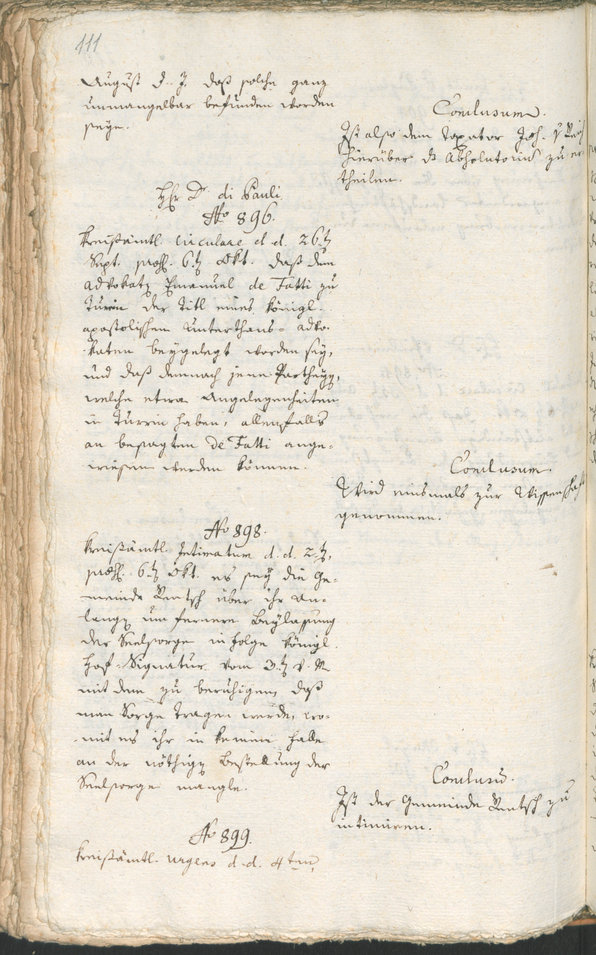 111
August d. J. daß solche ganz
unmangelbar befunden worden
seye.
Conclusum.
Ist also dem Taxator Joh. v
hierüber d Absolutorium zu er
theilen.
Hr. D. di Pauli
No 896.
Kreißämtl. Circulare d. d. 26t
Sept. præs. 6t Okt. daß dem
Advokatz Emanuel de Fatti zu
Turin der Titl eines königl.
apostolischen Unterthans- Advo-
katen beygelegt worden sey,
und daß demnach jene Partheyen,
welche etwa Angelegenheiten
in Turrin haben, allenfalls
an besagten de Fatti ange-
wiesen werden können.
Conclusum.
Wird einsmals zur Wissenschaft
genommen.
No 898.
Kreißämtl. Intimatum d. d. 2t,
præs. 6t Okt. es sey die Ge-
meinde Rentsch über ihr An-
langen um fernere Beylassung
der Seelsorge in Folge königl.
Hof-Signatur vom 3t v. M.
mit dem zu beruhigen, daß
man Sorge tragen werde, wo-
mit es ihr in keinem Falle
an der nöthigen Bestellung der
Seelsorge mangle.
Conclusum.
Ist der Gemeinde Rentsch zu
intimiren.
No 899.
Kreißämtl. Urgens d. d. 4ten,